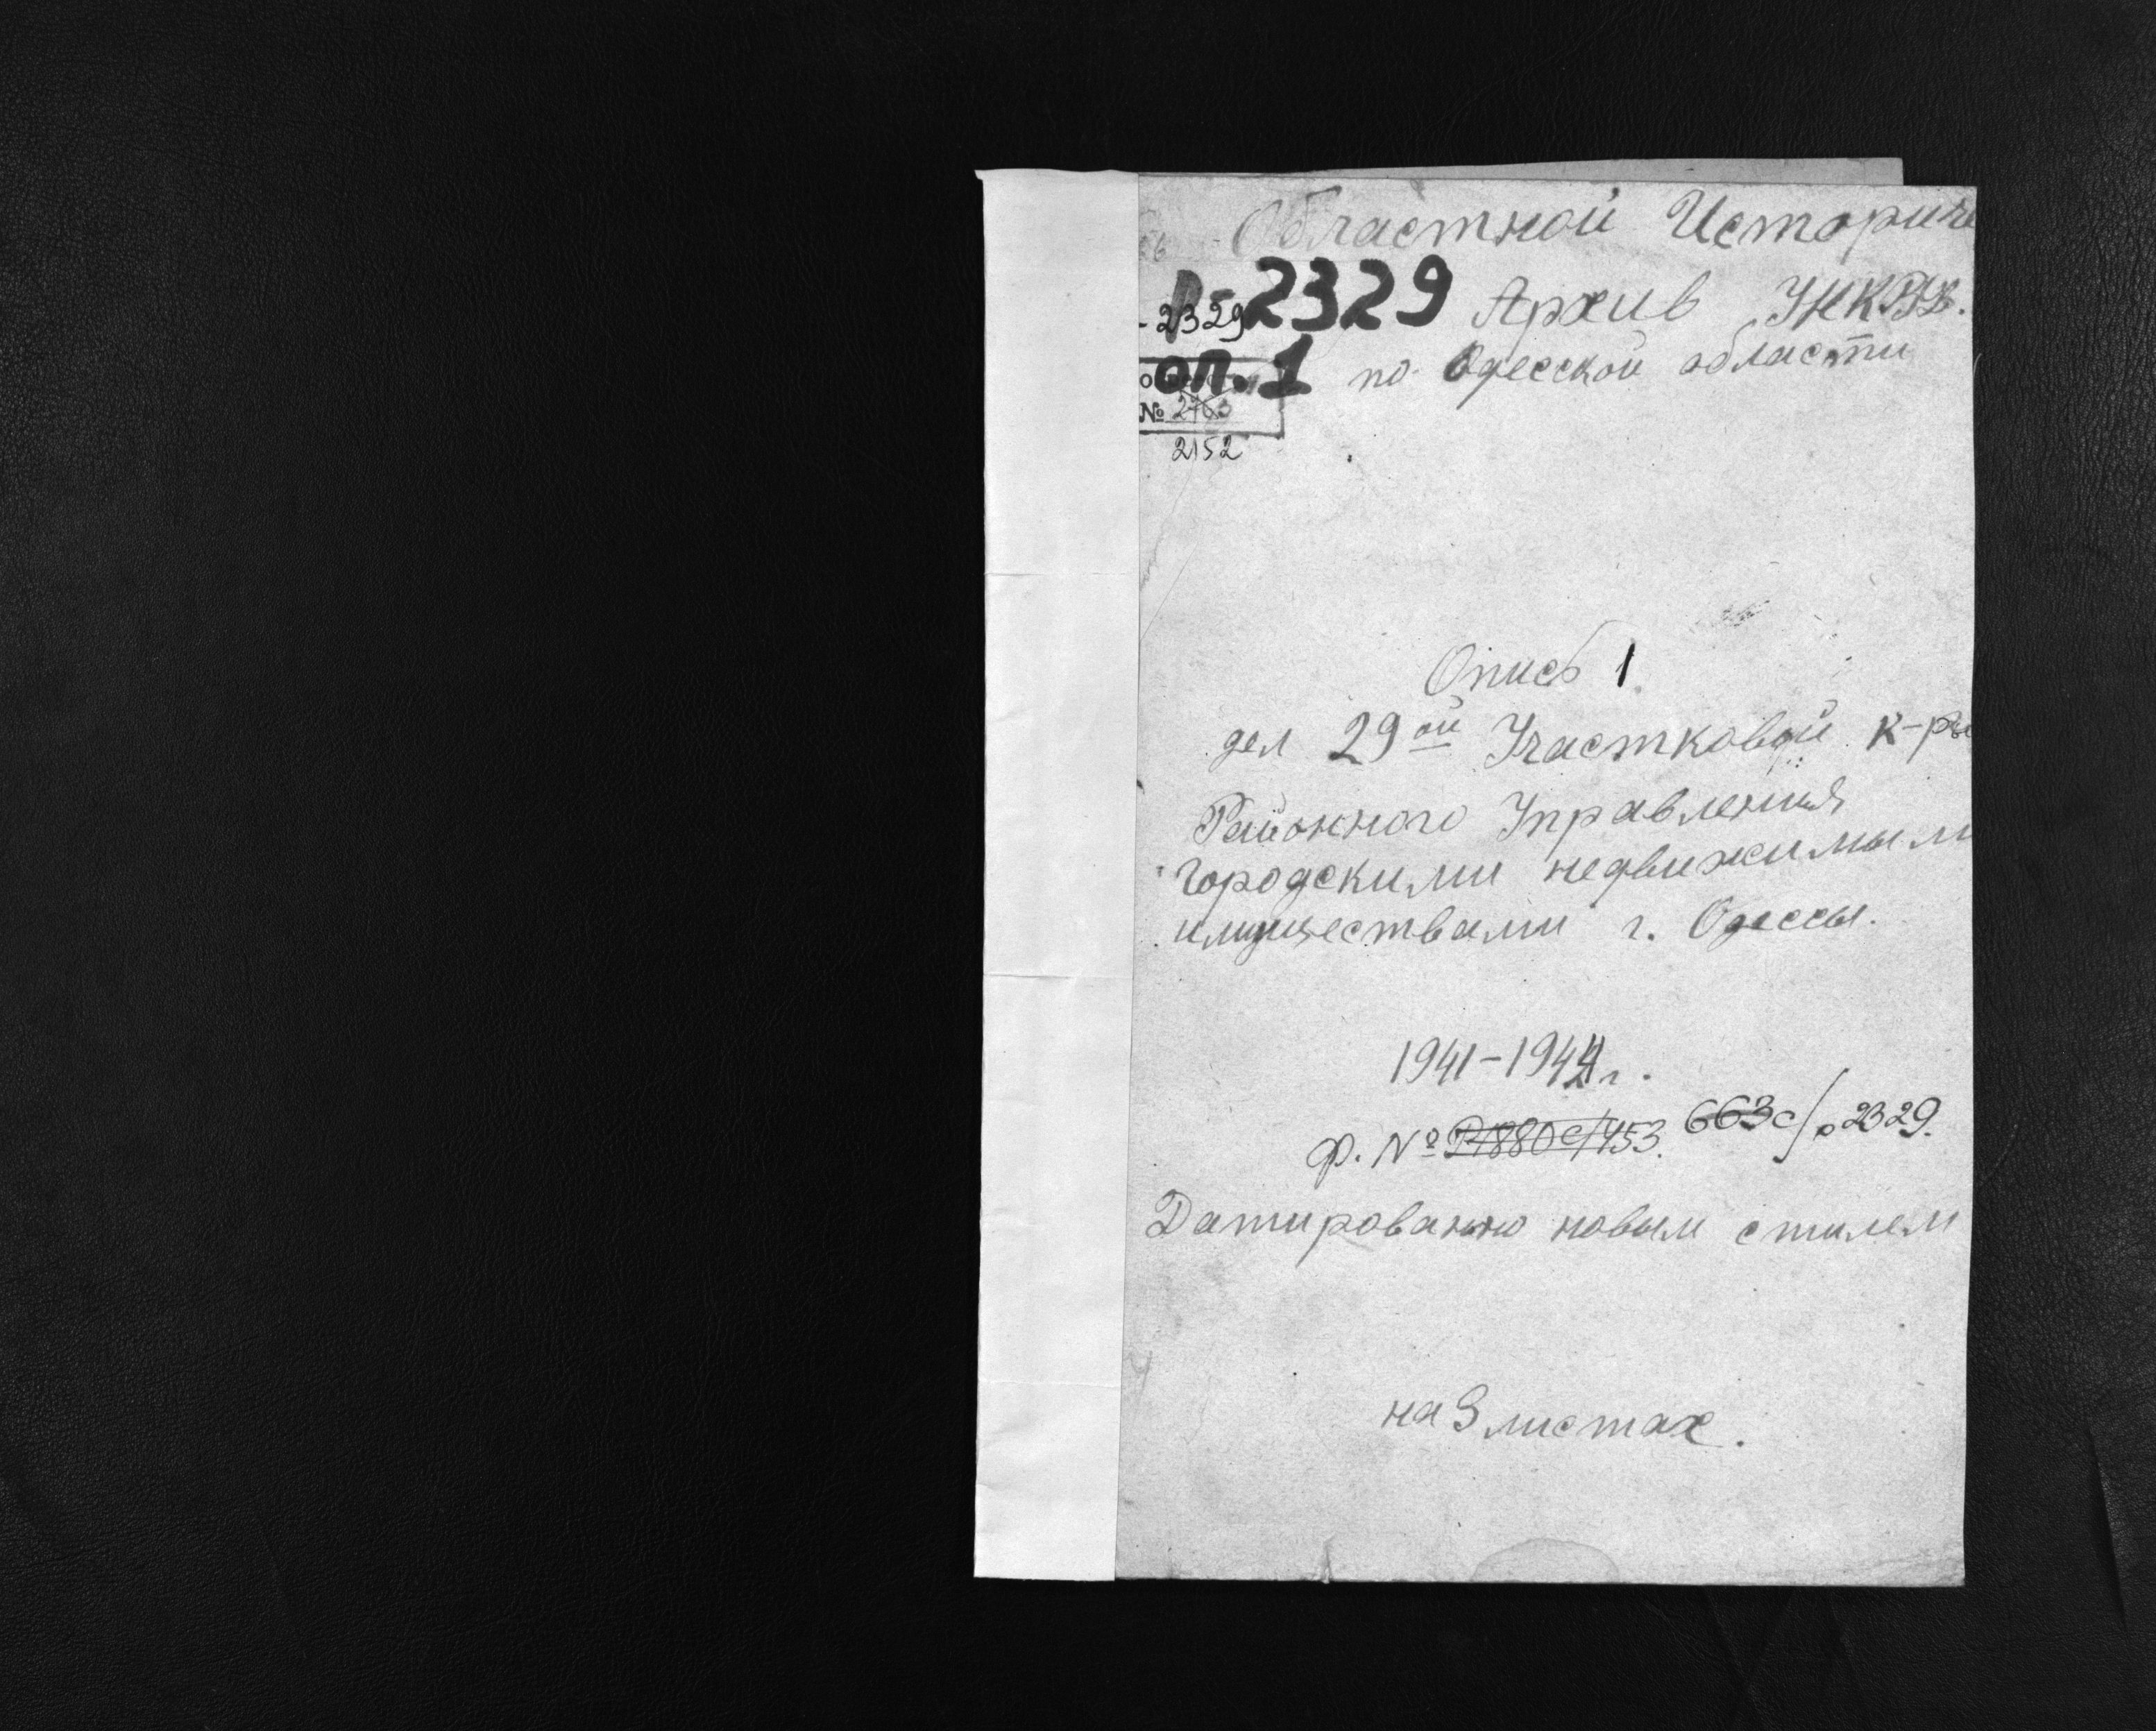 Областной Историче
Р-2329 Архив УНКВД.
-2329
оп. 1 по Одесской области
№ 2763
2152
Опись 1
дел 29ой Участковой к-ры
Районного Управления
городскими недвижимым
имуществами г. Одессы.
1941-1944 г.
Ф. № Р-1880с/453. 663с/р2329.
Датированно новым стилем
на 3 листах.